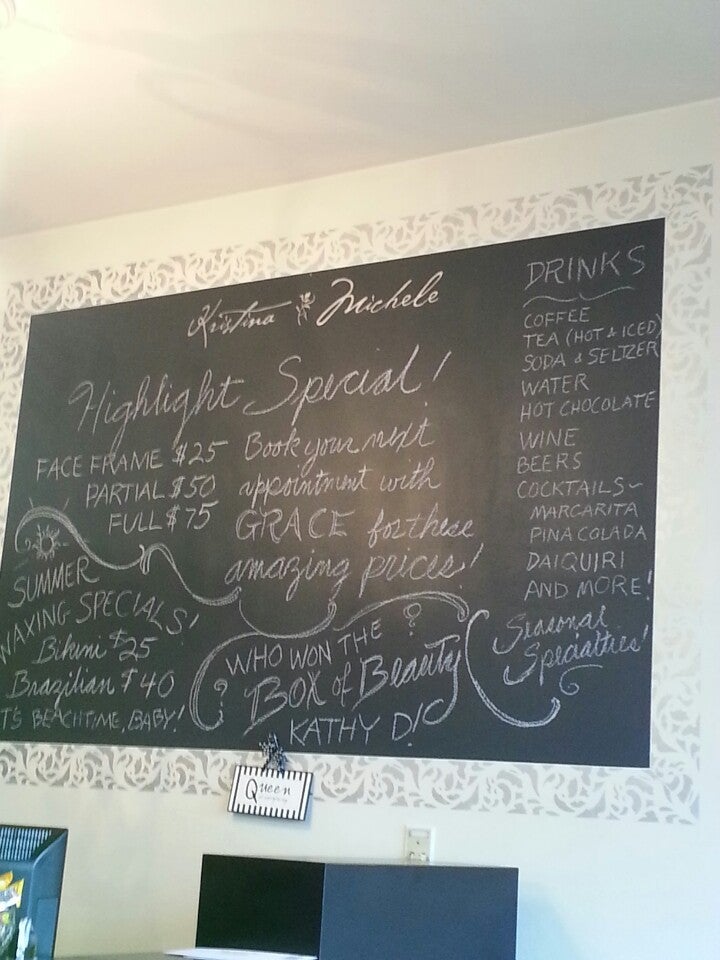 Kristina Michele
Highlight Special!
FACE FRAME $25
PARTIAL $50
FULL $75
Book your next
appointment with
GRACE for these
amazing prices!
SUMMER
WAXING SPECIALS!
Bikini $25
Brazilian $40
T'S BEACHTIME, BABY!
WHO WON THE ?
? BOX of Beauty
KATHY D!
DRINKS
COFFEE
TEA (HOT & ICED)
SODA & SELTZER
WATER
HOT CHOCOLATE
WINE
BEERS
COCKTAILS~
MARGARITA
PINA COLADA
DAIQUIRI
AND MORE!
Seasonal
Specialties!
Queen